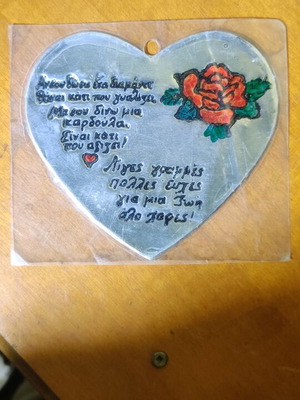 Αν σου δώσω ένα διαμάντι
θα 'ναι κάτι που γυαλίζει
Μα σου δίνω μια
καρδούλα.
Είναι κάτι
που αξίζει!
Λίγες γραμμές
πολλές ευχές
για μια ζωή
όλο χαρές!